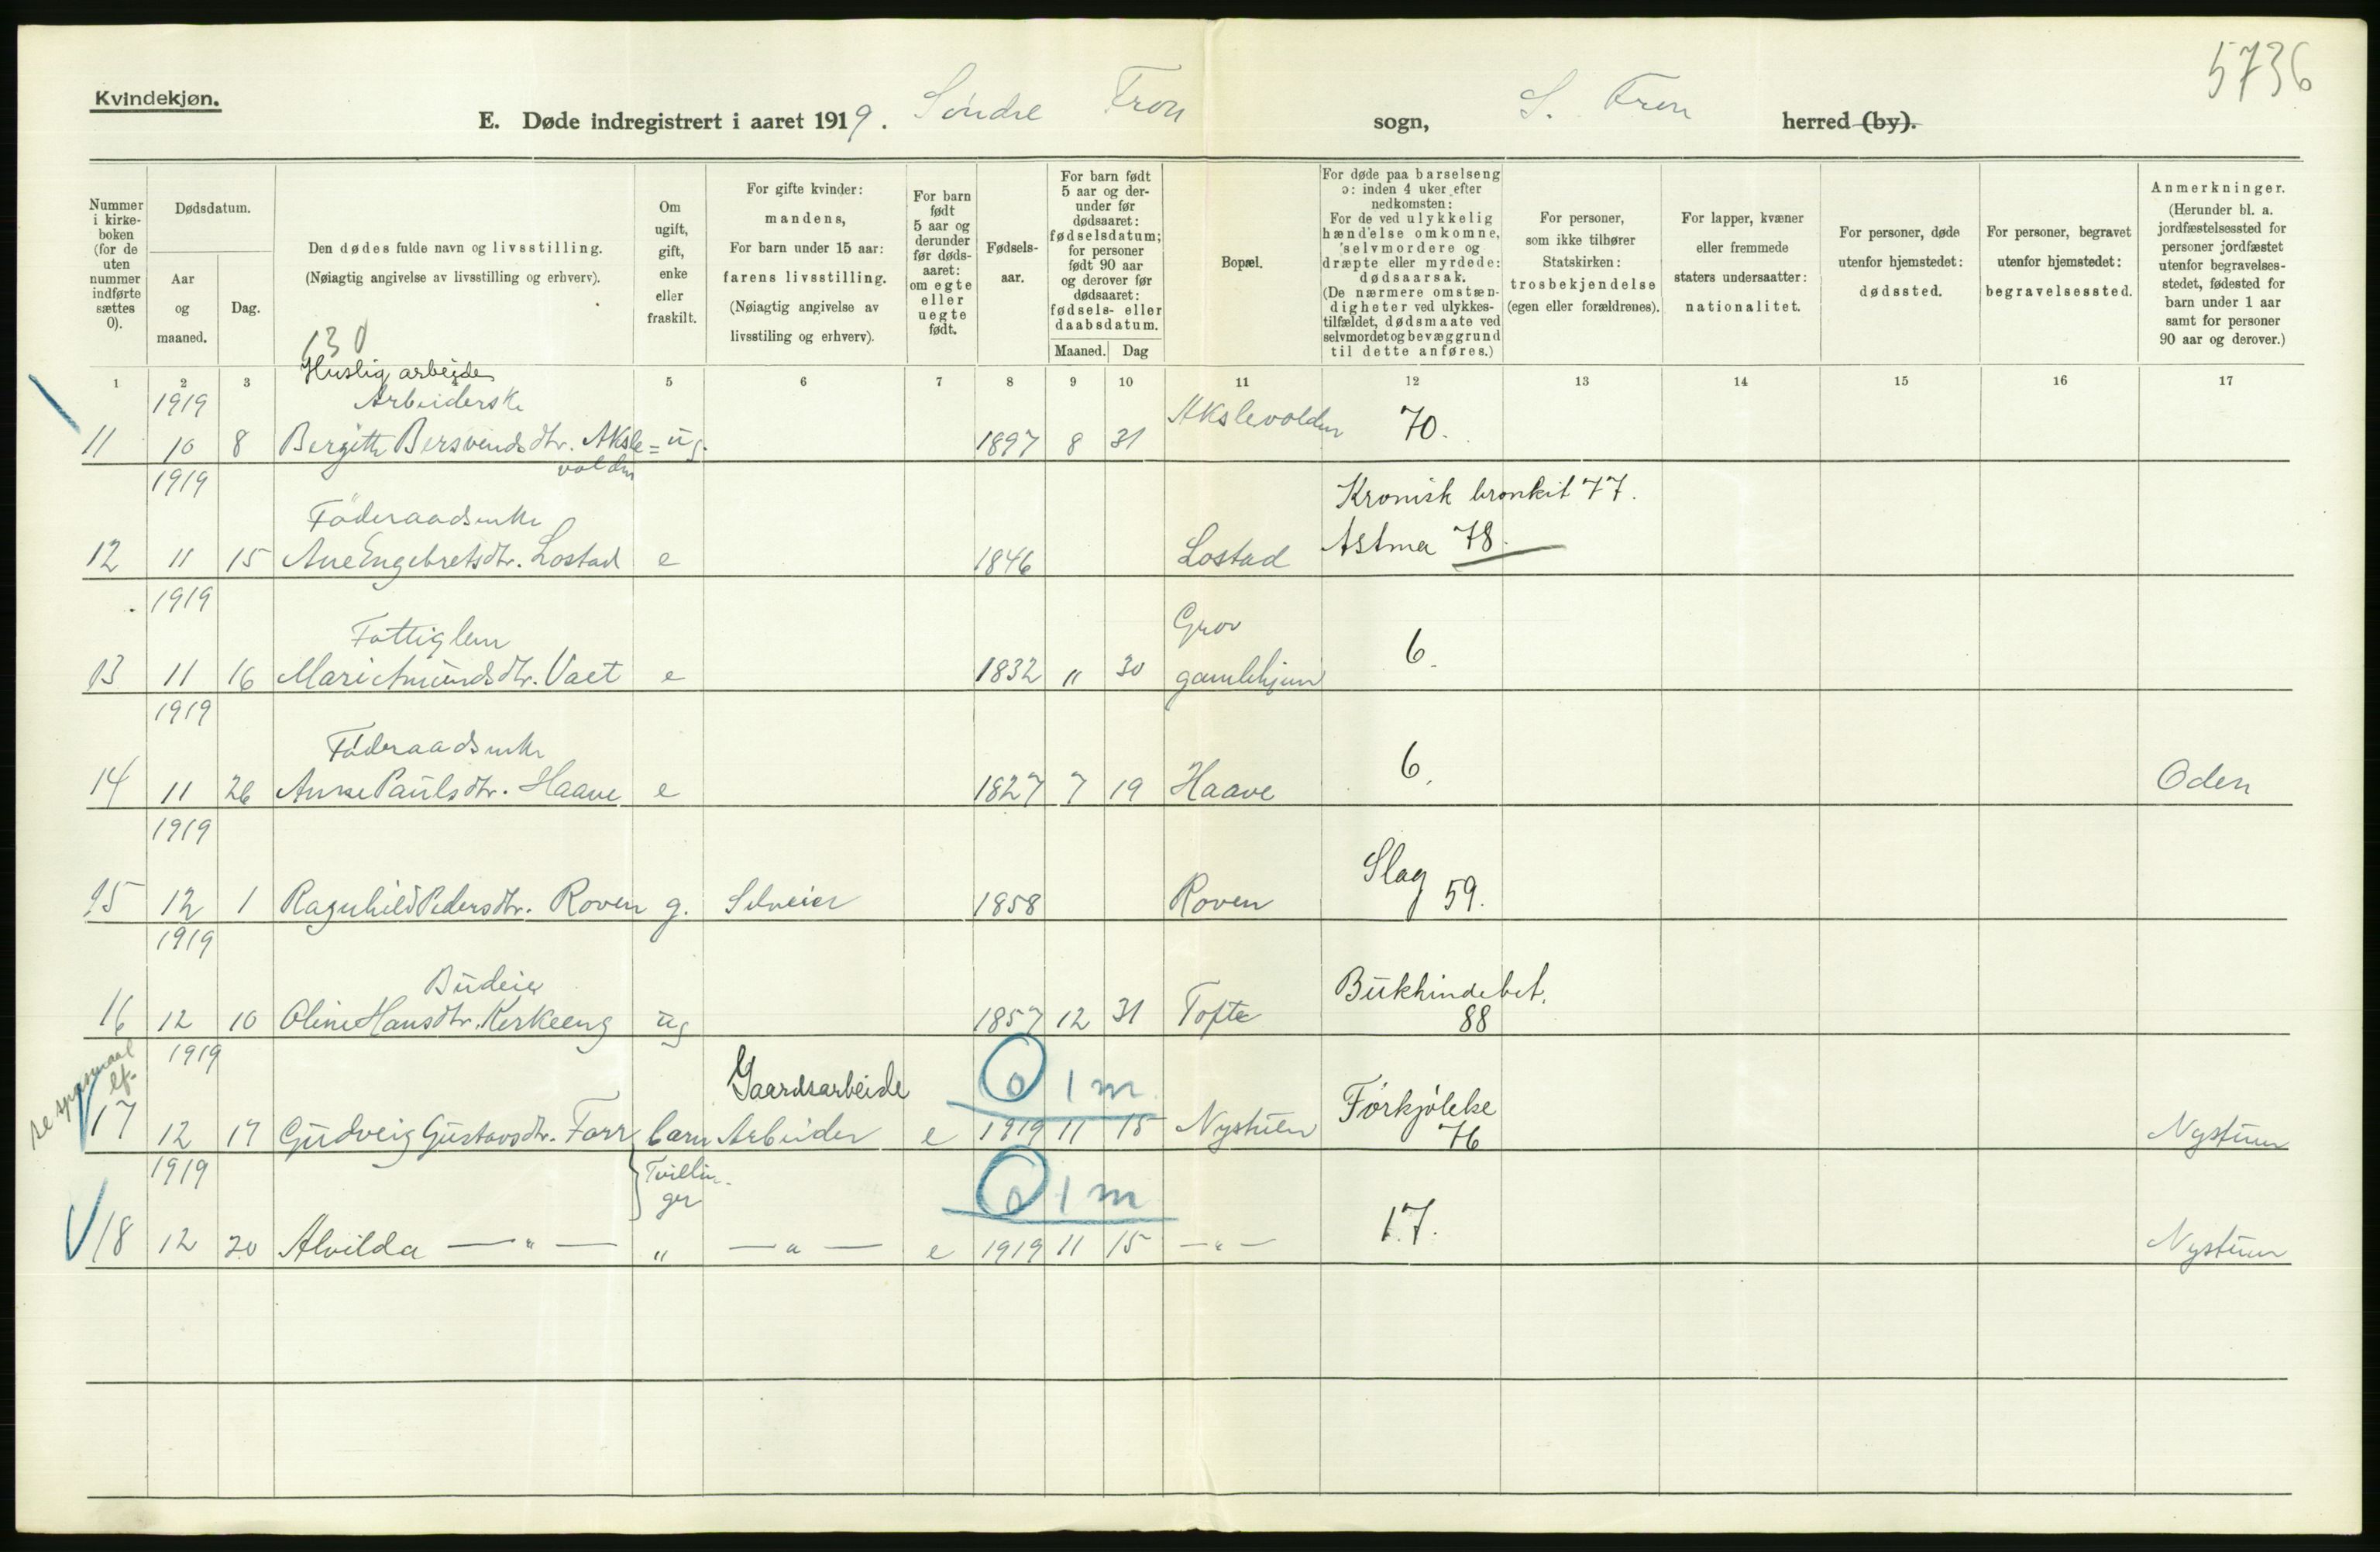 5736
Kvindekjøn.
E. Døde indregistrert i aaret 1919. Söndre Fron sogn, S. Fron herred (by).
Nummer i kirke-boken (for de uten nummer indførte sættes 0).
Dødsdatum.
Aar og maaned.
Dag.
Den dødes fulde navn og livsstilling.
(Nøiagtig angivelse av livsstilling og erhverv).
Om ugift, gift, enke eller fraskilt.
For gifte kvinder:
mandens,
For barn under 15 aar:
farens livsstilling.
(Nøiagtig angivelse av livsstiling og erhverv).
For barn født 5 aar og derunder før døds-aaret: om egte eller uegte født.
Fødsels-aar.
For barn født 5 aar og der-under før dødsaaret: fødselsdatum; for personer født 90 aar og derover før dødsaaret: fødsels- eller daabsdatum.
Maaned. Dag
Bopæl.
For døde paa barselseng ɔ: inden 4 uker efter nedkomsten:
For de ved ulykkelig hændelse omkomne, selvmordere og dræpte eller myrdede: dødsaarsak.
(De nærmere omstæn-digheter ved ulykkes-tilfældet, dødsmaate ved selvmordet og bevæggrund til dette anføres.)
For personer, som ikke tilhører Statskirken: trosbekjendelse (egen eller forældrenes).
For lapper, kvæner eller fremmede staters undersaatter: nationalitet.
For personer, døde utenfor hjemstedet: dødssted.
For personer, begravet utenfor hjemstedet: begravelsessted.
Anmerkninger.
(Herunder bl. a. jordfæstelsessted for personer jordfæstet utenfor begravelses-stedet, fødested for barn under 1 aar samt for personer 90 aar og derover.)
130
1 2 3 5 6 7 8 9 10 11 12 13 14 15 16 17
Huslig arbeide
1919 Arbeiderske Akslevolden 70.
11 10 8 Bergitte Bersvendsdtr. Aksle= ug. 1897 8 31
volden
1919 Kronisk bronkit 77.
Föderaadsenke Astma 78.
12 11 15 Ane Engebretsdtr. Lostad e 1846 Lostad
1919
Fattiglem Grov 6.
13 11 16 Mari Amundsdtr. Vaet e 1832 11 30 gamlehjem
1919
Föderaadsenke 6.
14 11 26 Anne Paulsdtr. Haave e 1827 7 19 Haave Oden
1919
Slag 59.
15 12 1 Ragnhild Pedersdtr. Roven g. Selveier 1858 Roven
1919
Budeie Bukhindebet. 88
16 12 10 Oline Hansdtr. Kirkeeng ug 1857 12 31 Tofte
1919 Gaardsarbeide 0 1 m Forkjölelse 76
17 12 17 Gudveig Gustavsdtr. Farr barn Arbeider e 1919 11 15 Nystuen Nystuen
1919 Tvillin-ger 0 1 m
18 12 20 Alvilda — " — " — " — e 1919 11 15 — " — 17. Nystuen